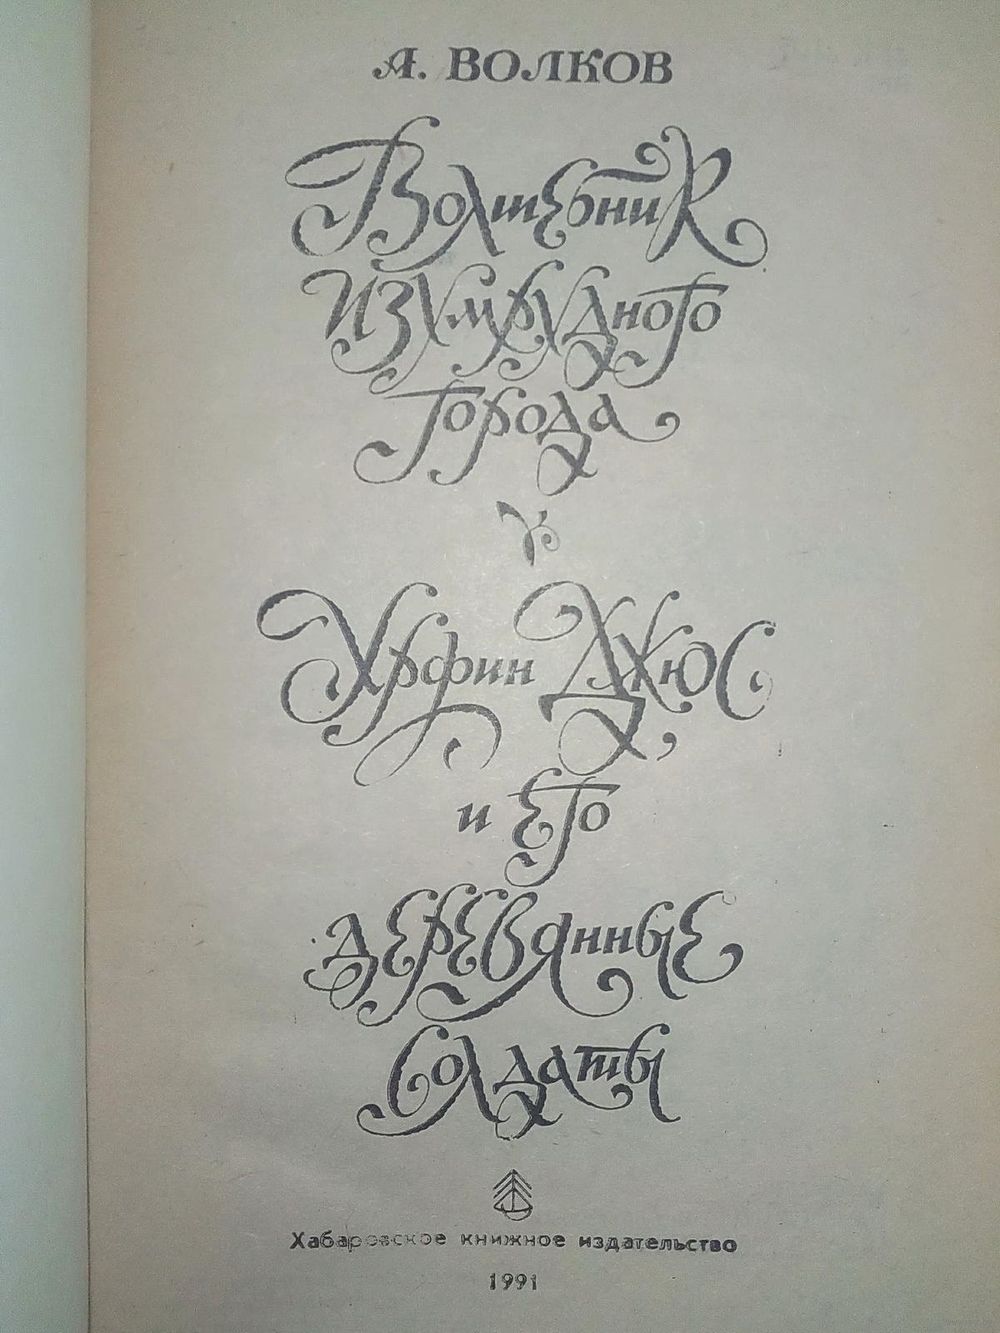 А. ВОЛКОВ
Волшебник
Изумрудного
города
Урфин Джюс
и его
деревянные
солдаты
Хабаровское книжное издательство
1991